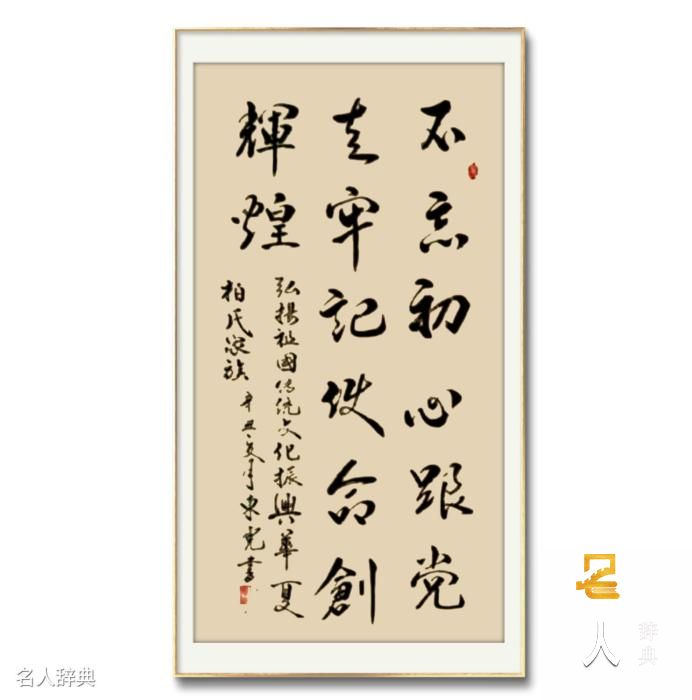 不忘初心跟党
走牢记使命創
輝煌
弘揚祖國传统文化振興華夏
柏氏家族
辛丑夏月東光書
名人辞典
名
人
辞典